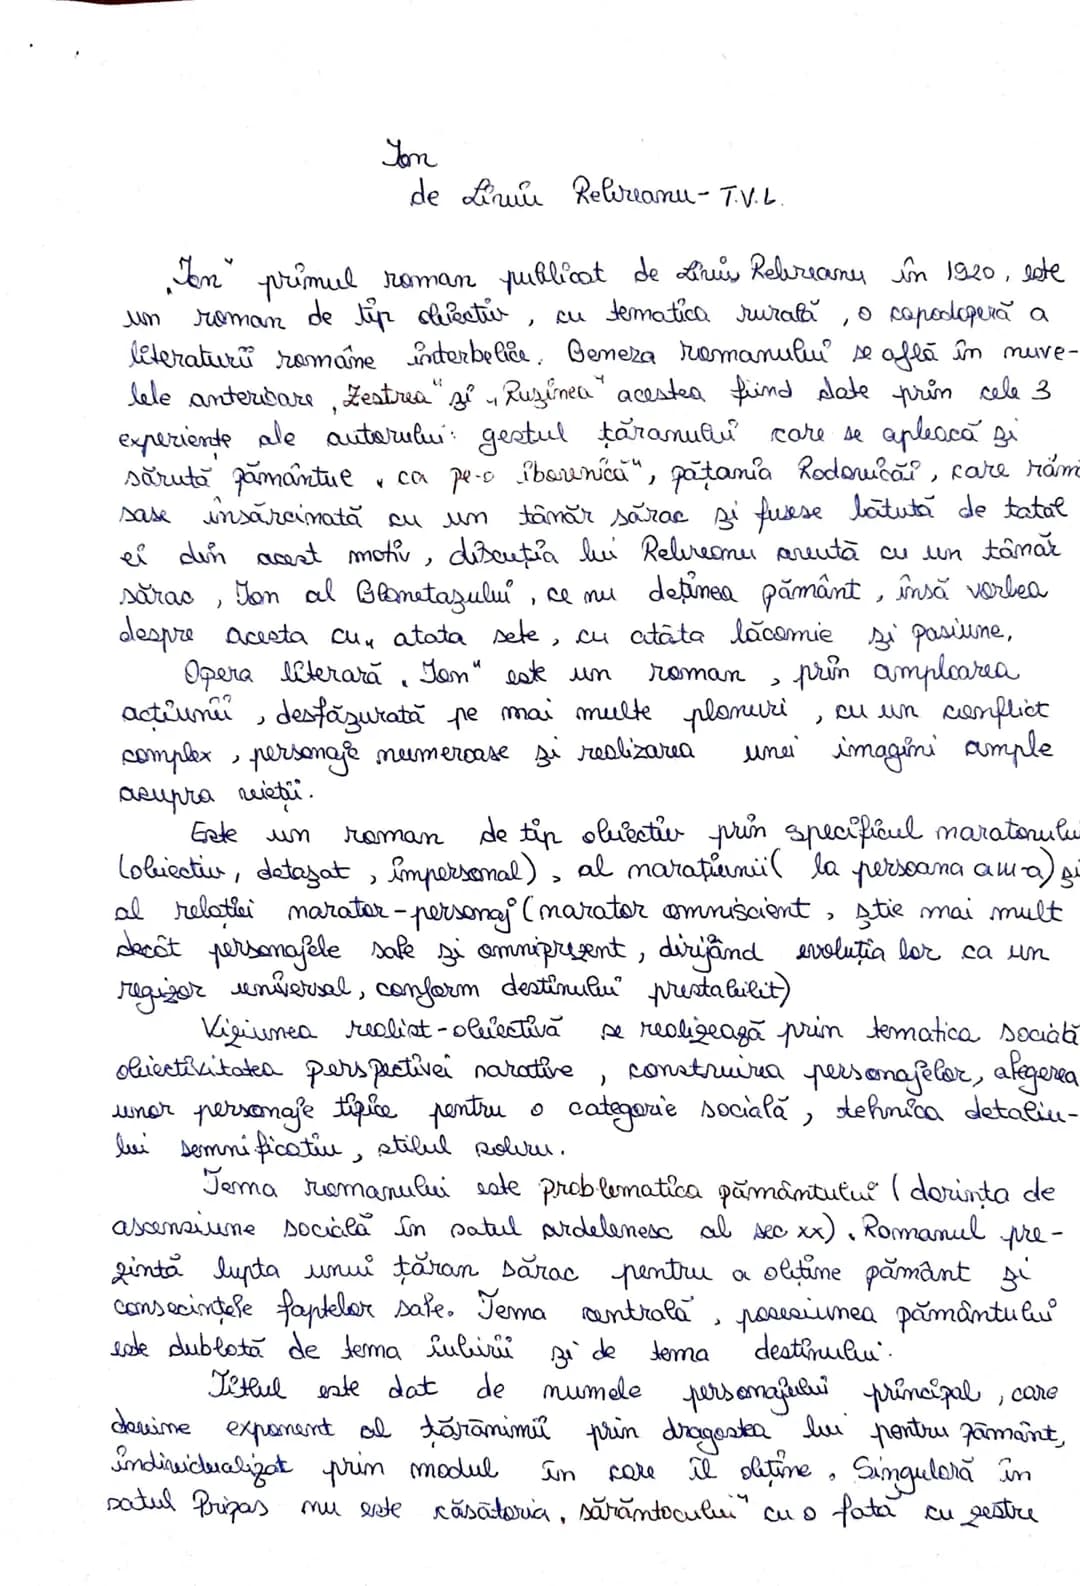 Ion
de Liviu Rebreanu - T.V.L.
„Ion" primul roman publicat de Liviu Rebreanu în 1920, este
un roman de tip obiectiv, cu tematica rurală, o capodoperă a
literaturii române interbelice. Geneza romanului se află în nuve-
lele anterioare „Zestrea" și „Rușinea" acestea fiind date prin cele 3
experiențe ale autorului: gestul țăranului care se apleacă și
sărută pământul „ca pe-o ibovnică", pățania Rodovicăi, care rămă
sase însărcinată cu un tânăr sărac și fusese bătută de tatăl
ei din acest motiv, discuția lui Rebreanu avută cu un tânăr
sărac, Ion al Glanetașului, ce nu deținea pământ, însă vorbea
despre acesta cu „atata sete, cu atâta lăcomie și pasiune,
Opera literară „Ion" este un roman, prin amploarea
acțiunii, desfășurată pe mai multe planuri, cu un conflict
complex, personaje numeroase și realizarea unei imagini ample
asupra vieții.
Este un roman de tip obiectiv prin specificul naratorului
(obiectiv, detașat, impersonal), al narațiunii (la persoana a III-a) și
al relației narator-personaj (narator omniscient, știe mai mult
decât personajele sale și omniprezent, dirijând evoluția lor ca un
regizor universal, conform destinului prestabilit)
Viziunea realist-obiectivă se realizează prin tematica socială
obiectivitatea perspectivei narative, construirea personajelor, alegerea
unor personaje tipice pentru o categorie socială, tehnica detaliu-
lui semnificativ, stilul sobru.
Tema romanului este problematica pământului (dorința de
ascensiune socială în satul ardelenesc al sec xx). Romanul pre-
zintă lupta unui țăran sărac pentru a obține pământ și
consecințele faptelor sale. Tema centrală, posesiunea pământului
este dublată de tema iubirii și de tema destinului.
Titlul este dat de numele personajului principal, care
devine exponent al țărănimii prin dragostea lui pentru pământ,
individualizat prin modul în care îl obține. Singulară în
satul Pripas nu este căsătoria „sărăntocului" cu o fată cu zestre